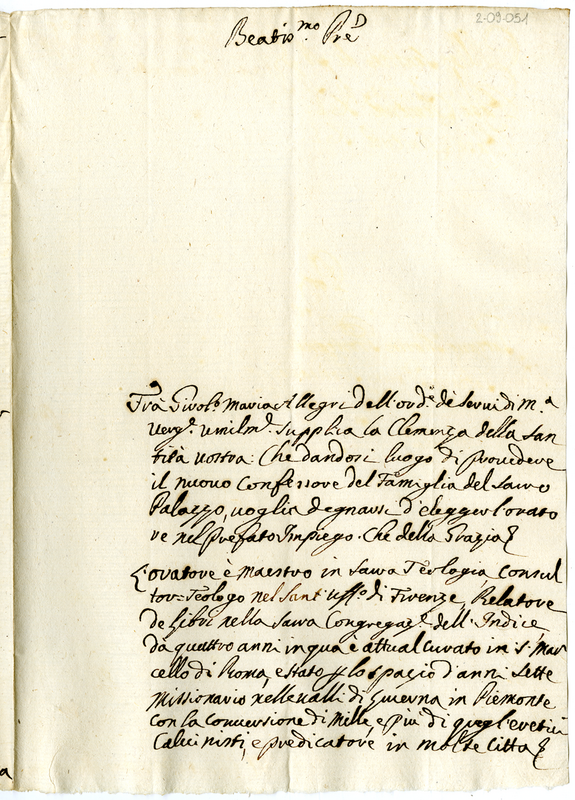 2-09-051
Beatis.mo Pre
Frà Girol.o Maria Allegri dell'ord.e de Servi di M.a
Verg.e umilm.e supplica la Clemenza della San
tità vostra: Che dandosi luogo di provedere
il nuovo Confessore del Famiglia del Sacro
Palazzo, voglia degnarsi d'elegger l'orato
re nel prefato Impiego. Che della Grazia
L'oratore è Maestro in Sacra Teologia Consul
tor=Teologo nel Sant'uff.o di Firenze, Relatore
de libri nella Sacra Congregaz.e dell'Indice
da quattro anni in qua è attual Curato in S. Mar
cello di Roma, e stato p lo spazio d'anni sette
Missionario nelle valli di Luserna in Piemonte
con la conversione di Mille, e più di quegl'eretici
Calvinisti, e predicatore in molte Città